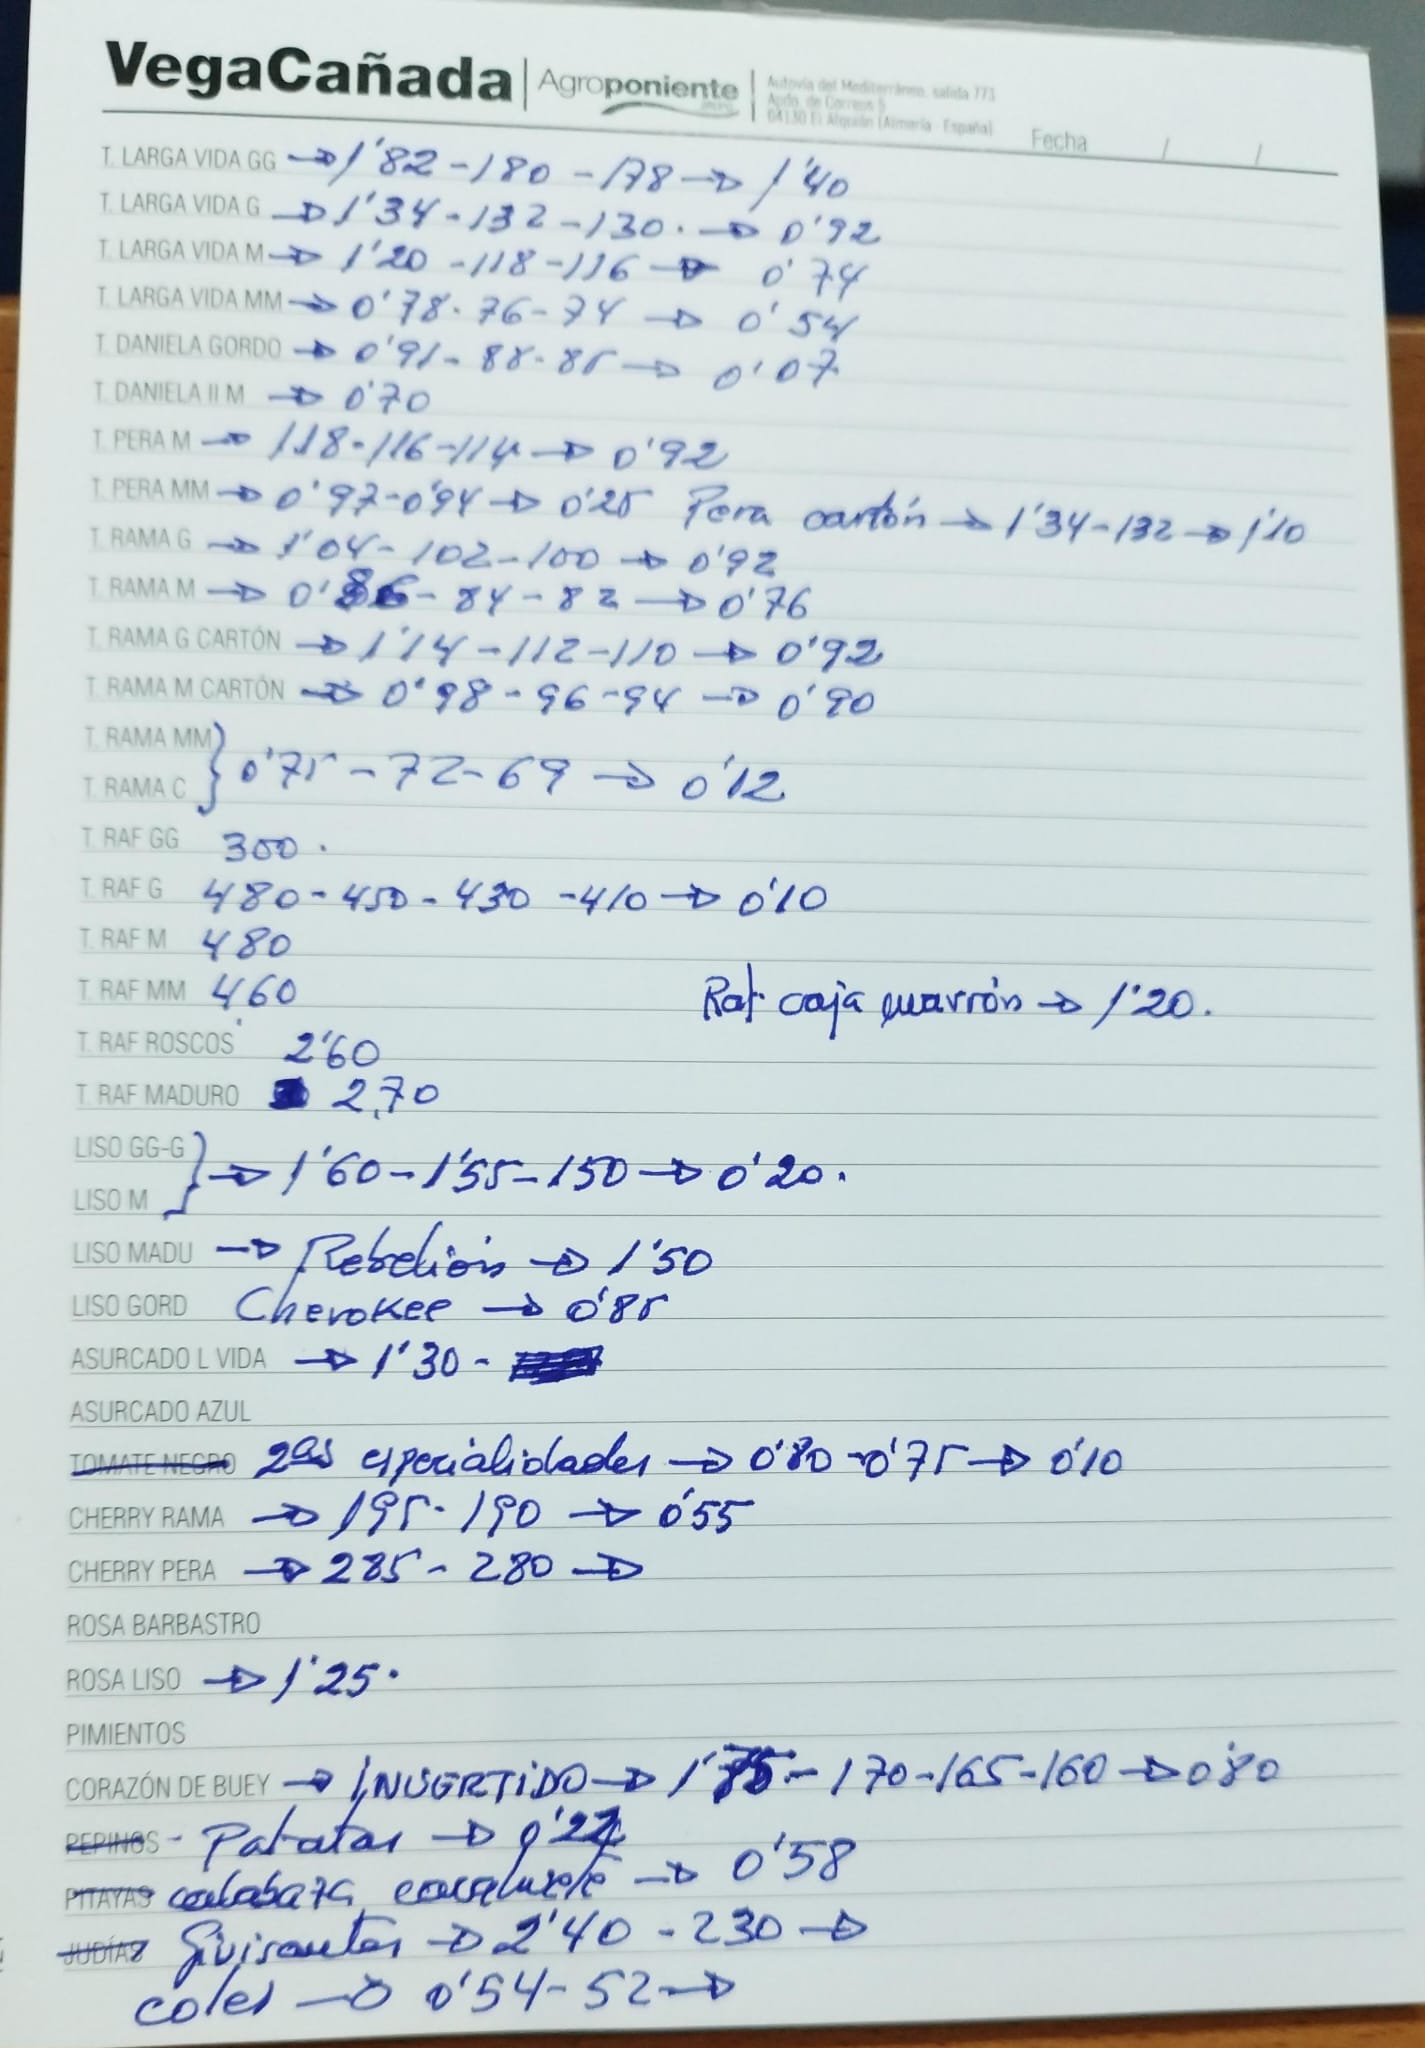 VegaCañada Agroponiente
Autovía del Mediterráneo, salida 773
Apdo. de Correos 5
04130 El Alquián (Almería - España)
Fecha / /
T. LARGA VIDA GG → 1'82 - 180 - 178 → 1'40
T. LARGA VIDA G → 1'34 - 132 - 130. → 0'92
T. LARGA VIDA M → 1'20 - 118 - 116 → 0'74
T. LARGA VIDA MM → 0'78. 76 - 74 → 0'54
T. DANIELA GORDO → 0'91 - 88 - 85 → 0'07
T. DANIELA II M → 0'70
T. PERA M → 118 - 116 - 114 → 0'92
T. PERA MM → 0'97 - 0'94 → 0'25 Pera cartón → 1'34 - 132 → 1'10
T. RAMA G → 1'04 - 102 - 100 → 0'92
T. RAMA M → 0'86 - 84 - 82 → 0'76
T. RAMA G CARTÓN → 1'14 - 112 - 110 → 0'92
T. RAMA M CARTÓN → 0'98 - 96 - 94 → 0'90
T. RAMA MM
T. RAMA C } 0'75 - 72 - 69 → 0'12
T. RAF GG 300.
T. RAF G 480 - 450 - 430 - 410 → 0'10
T. RAF M 480
T. RAF MM 460 Raf caja marrón → 1'20.
T. RAF ROSCOS 2'60
T. RAF MADURO 2,70
LISO GG-G
LISO M } → 1'60 - 1'55 - 150 → 0'20.
LISO MADU → Rebelión → 1'50
LISO GORD Cherokee → 0'85
ASURCADO L VIDA → 1'30 -
ASURCADO AZUL
TOMATE NEGRO 2as especialidades → 0'80 - 0'75 → 0'10
CHERRY RAMA → 195 - 190 → 0'55
CHERRY PERA → 285 - 280 →
ROSA BARBASTRO
ROSA LISO → 1'25.
PIMIENTOS
CORAZÓN DE BUEY → INVERTIDO → 1'75 - 170 - 165 - 160 → 0'80
PEPINOS - Patatas →
PITAYAS calabaza cacahuete → 0'58
JUDÍAS Guisantes → 2'40 - 230 →
coles → 0'54 - 52 →